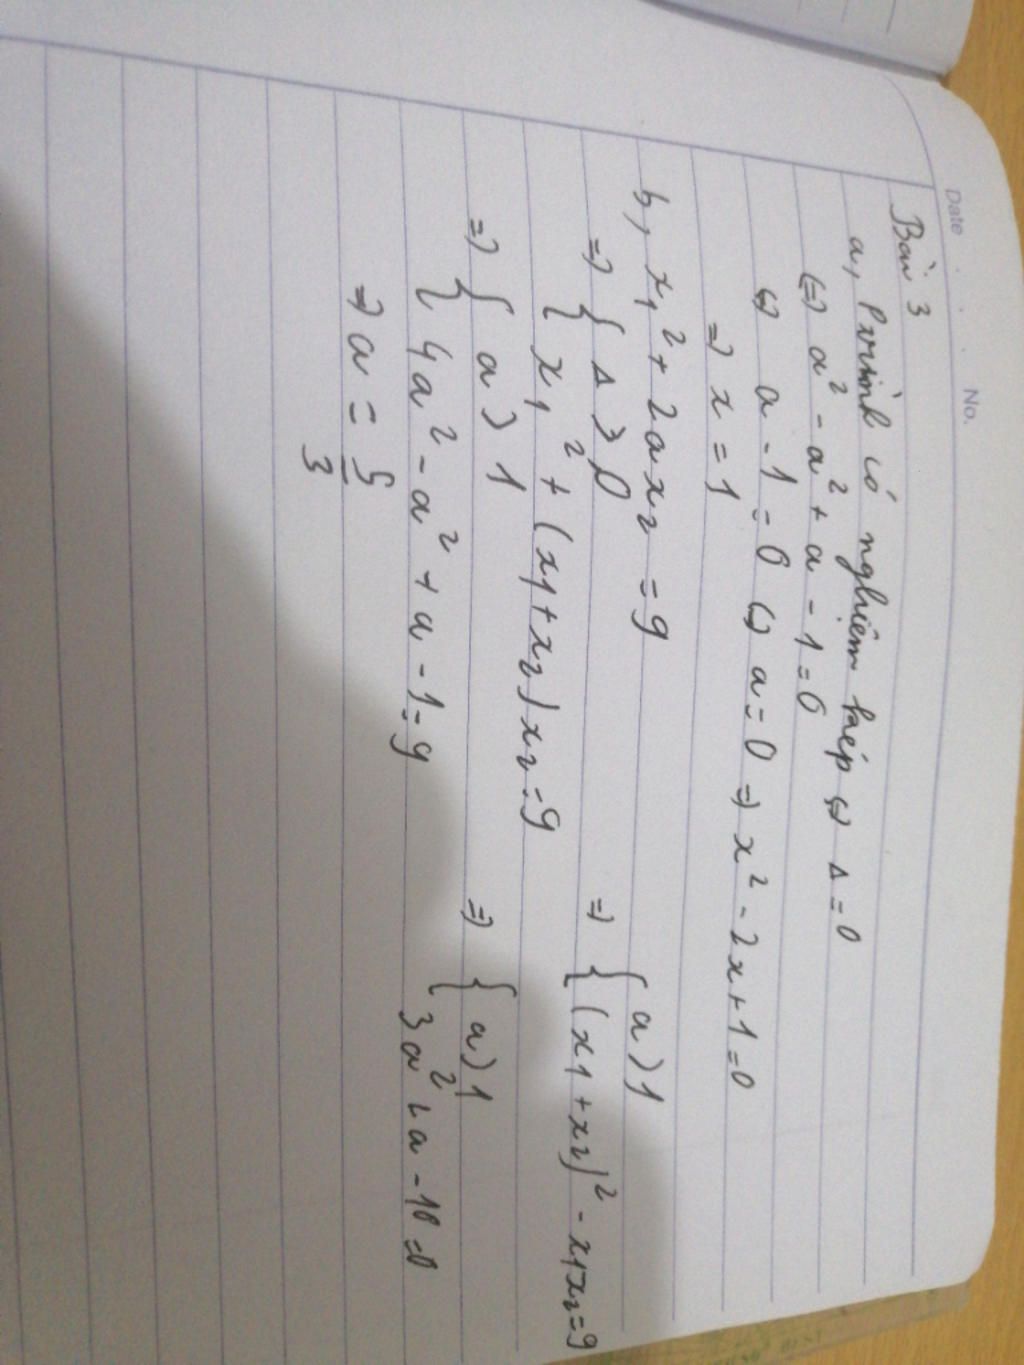 Date
No.
Bài 3
a, Ptrình có nghiệm kép <=> Δ = 0
(=) a² - a² + a - 1 = 0
<=> a - 1 = 0 <=> a = 0 => x² - 2x + 1 = 0
=> x = 1
b, x₁² + 2ax₂ = 9
=> { Δ > 0
x₁² + (x₁ + x₂) x₂ = 9
=> { a > 1
(x₁ + x₂)² - x₁x₂ = 9
=> { a > 1
4a² - a² + a - 1 = 9
=> { a > 1
3a² + a - 10 = 0
=> a = 5/3